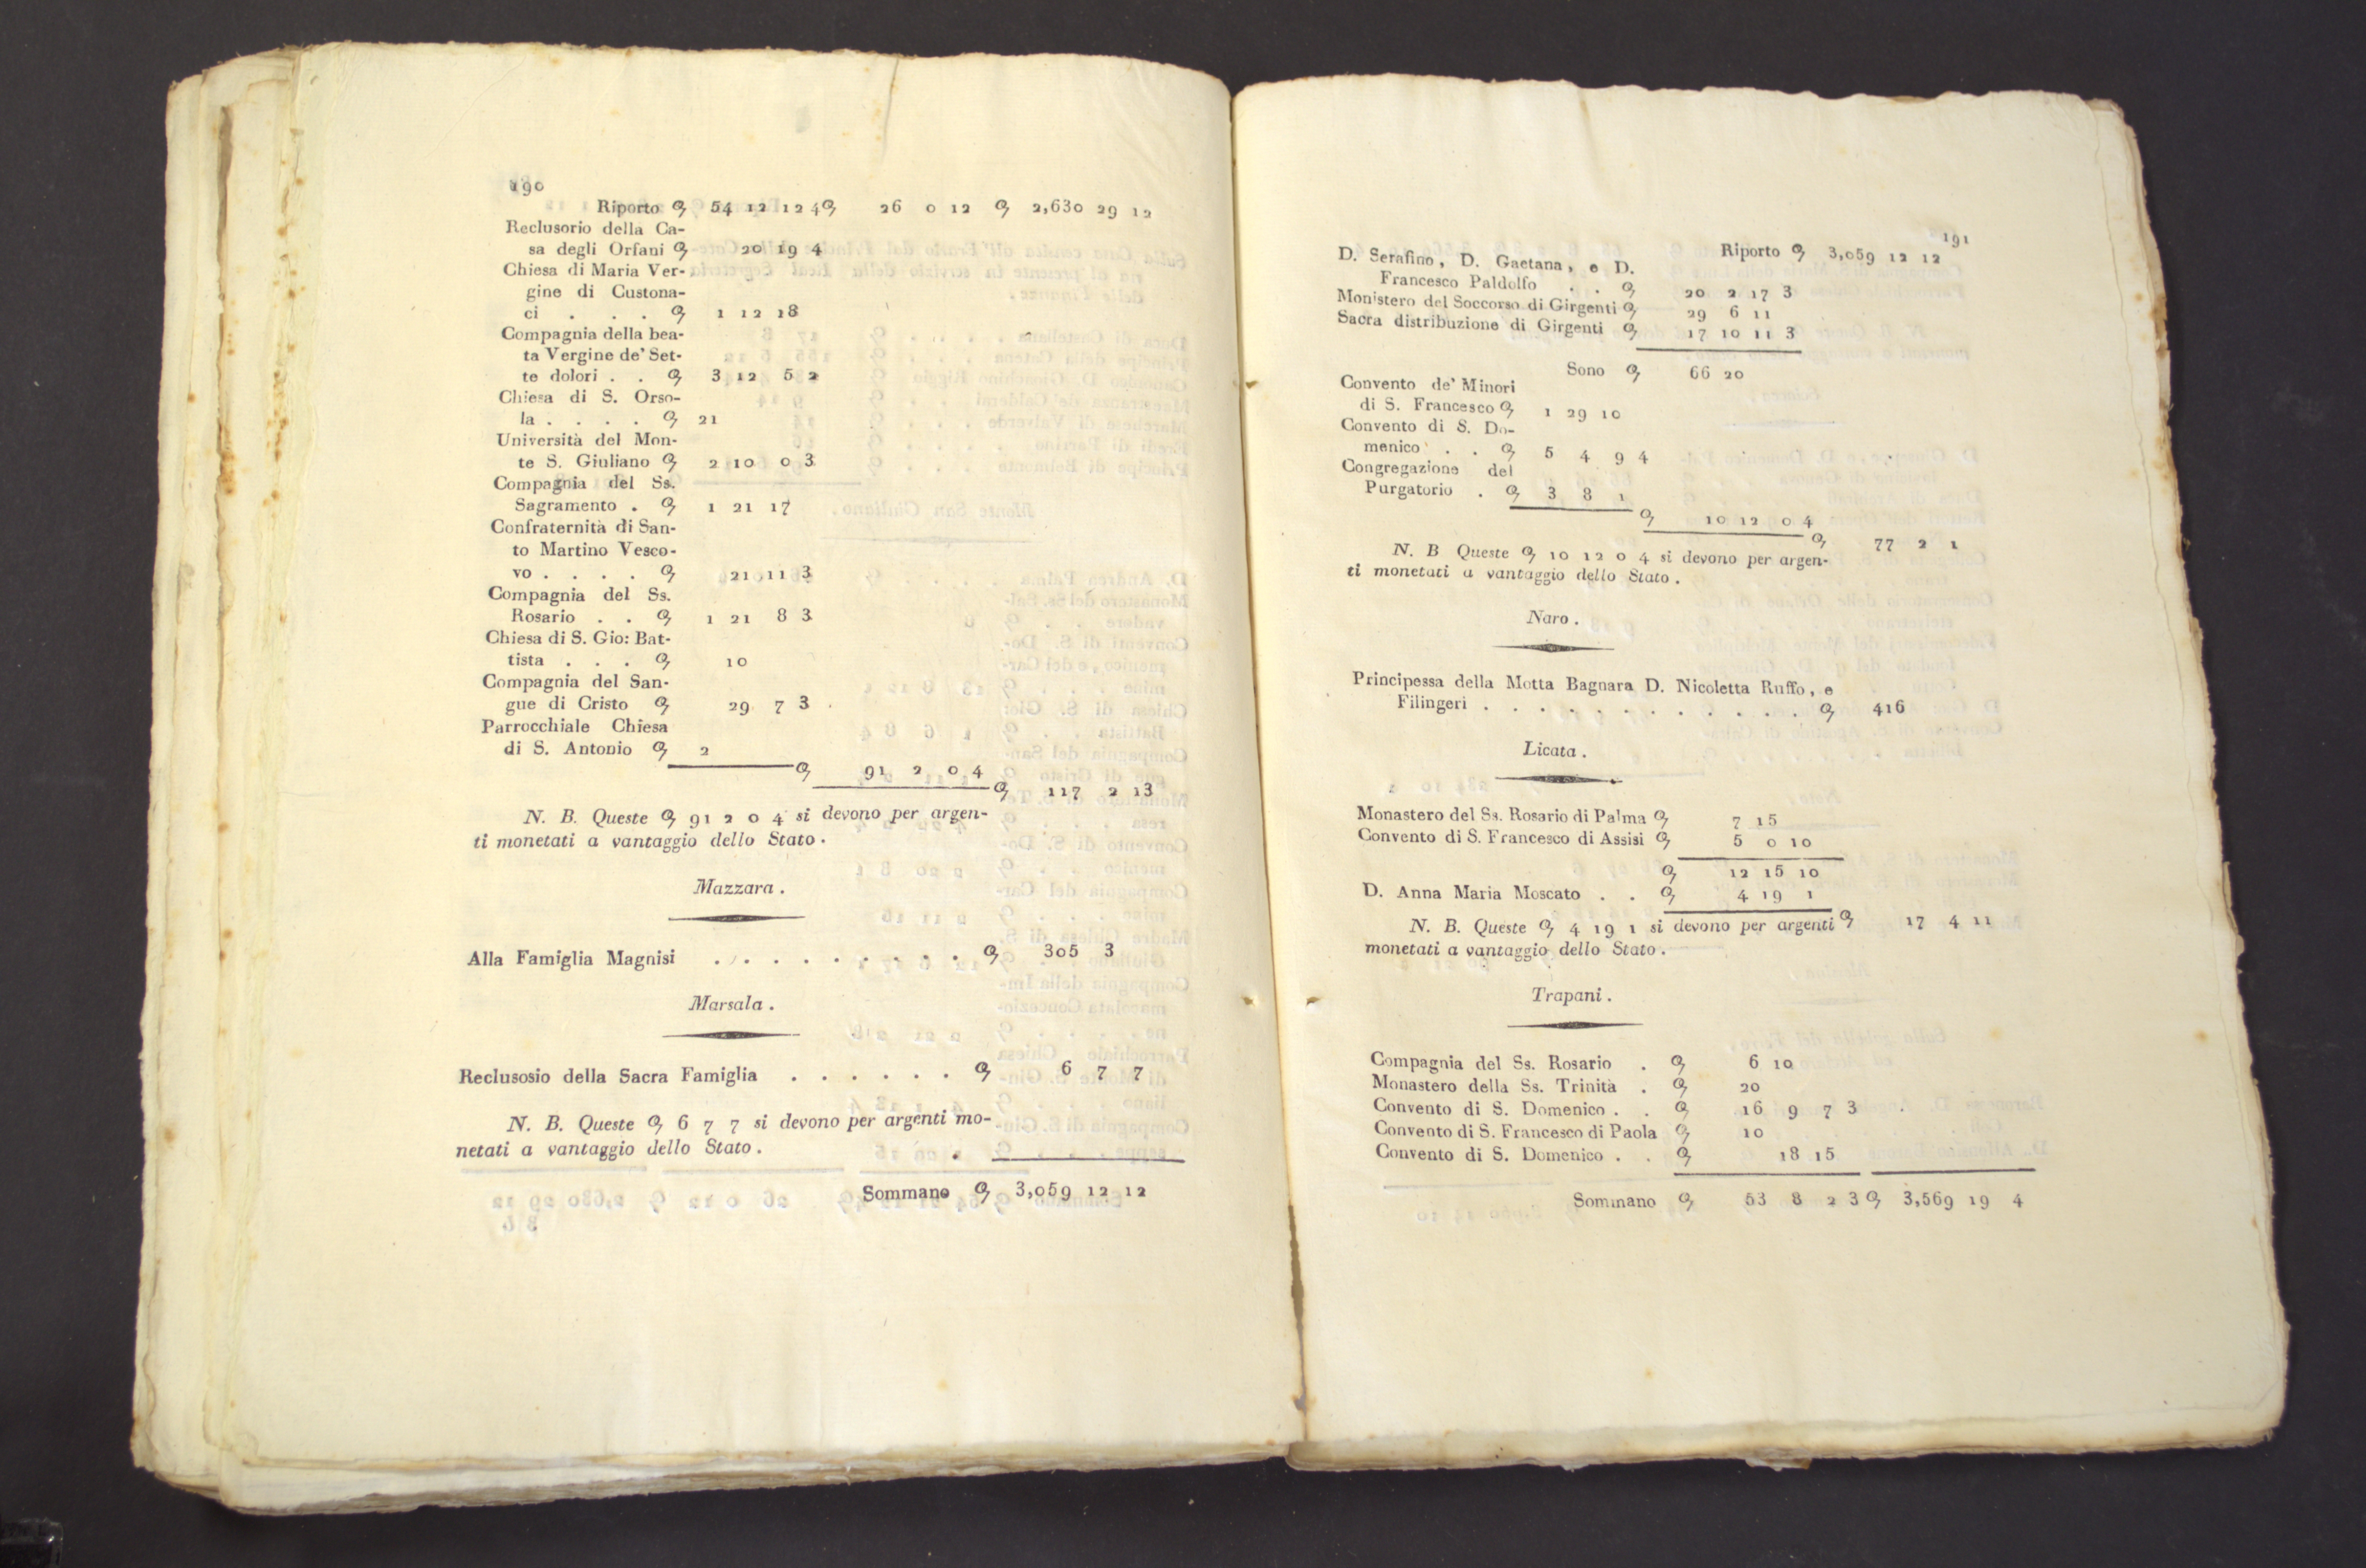 190
Riporto ꝙ 54 12 12 4 ꝙ 26 0 12 ꝙ 2,630 29 12
Reclusorio della Ca-
sa degli Orfani ꝙ 20 19 4
Chiesa di Maria Ver-
gine di Custona-
ci . . . ꝙ 1 12 18
Compagnia della bea-
ta Vergine de' Set-
te dolori . . ꝙ 3 12 5 2
Chiesa di S. Orso-
la . . . . ꝙ 21
Università del Mon-
te S. Giuliano ꝙ 2 10 0 3
Compagnia del Ss.
Sagramento . ꝙ 1 21 17
Confraternità di San-
to Martino Vesco-
vo . . . . ꝙ 21 11 3
Compagnia del Ss.
Rosario . . ꝙ 1 21 8 3
Chiesa di S. Gio: Bat-
tista . . . ꝙ 10
Compagnia del San-
gue di Cristo ꝙ 29 7 3
Parrocchiale Chiesa
di S. Antonio ꝙ 2
ꝙ 91 2 0 4
ꝙ 117 2 13
N. B. Queste ꝙ 91 2 0 4 si devono per argen-
ti monetati a vantaggio dello Stato.
Mazzara.
Alla Famiglia Magnisi . . . . . . . . . ꝙ 305 3
Marsala.
Reclusosio della Sacra Famiglia . . . . . . ꝙ 6 7 7
N. B. Queste ꝙ 6 7 7 si devono per argenti mo-
netati a vantaggio dello Stato.
Sommano ꝙ 3,059 12 12
191
Riporto ꝙ 3,059 12 12
D. Serafino, D. Gaetana, e D.
Francesco Paldolfo . . ꝙ 20 2 17 3
Monistero del Soccorso di Girgenti ꝙ 29 6 11
Sacra distribuzione di Girgenti ꝙ 17 10 11 3
Sono ꝙ 66 20
Convento de' Minori
di S. Francesco ꝙ 1 29 10
Convento di S. Do-
menico . . ꝙ 5 4 9 4
Congregazione del
Purgatorio . ꝙ 3 8 1
ꝙ 10 12 0 4
ꝙ 77 2 1
N. B Queste ꝙ 10 12 0 4 si devono per argen-
ti monetati a vantaggio dello Stato.
Naro.
Principessa della Motta Bagnara D. Nicoletta Ruffo, e
Filingeri . . . . . . . . . . . . ꝙ 416
Licata.
Monastero del Ss. Rosario di Palma ꝙ 7 15
Convento di S. Francesco di Assisi ꝙ 5 0 10
ꝙ 12 15 10
D. Anna Maria Moscato . . ꝙ 4 19 1
N. B. Queste ꝙ 4 19 1 si devono per argenti ꝙ 17 4 11
monetati a vantaggio dello Stato.
Trapani.
Compagnia del Ss. Rosario . ꝙ 6 10
Monastero della Ss. Trinità . ꝙ 20
Convento di S. Domenico . . ꝙ 16 9 7 3
Convento di S. Francesco di Paola ꝙ 10
Convento di S. Domenico . . ꝙ 18 15
Sommano ꝙ 53 8 2 3 ꝙ 3,569 19 4